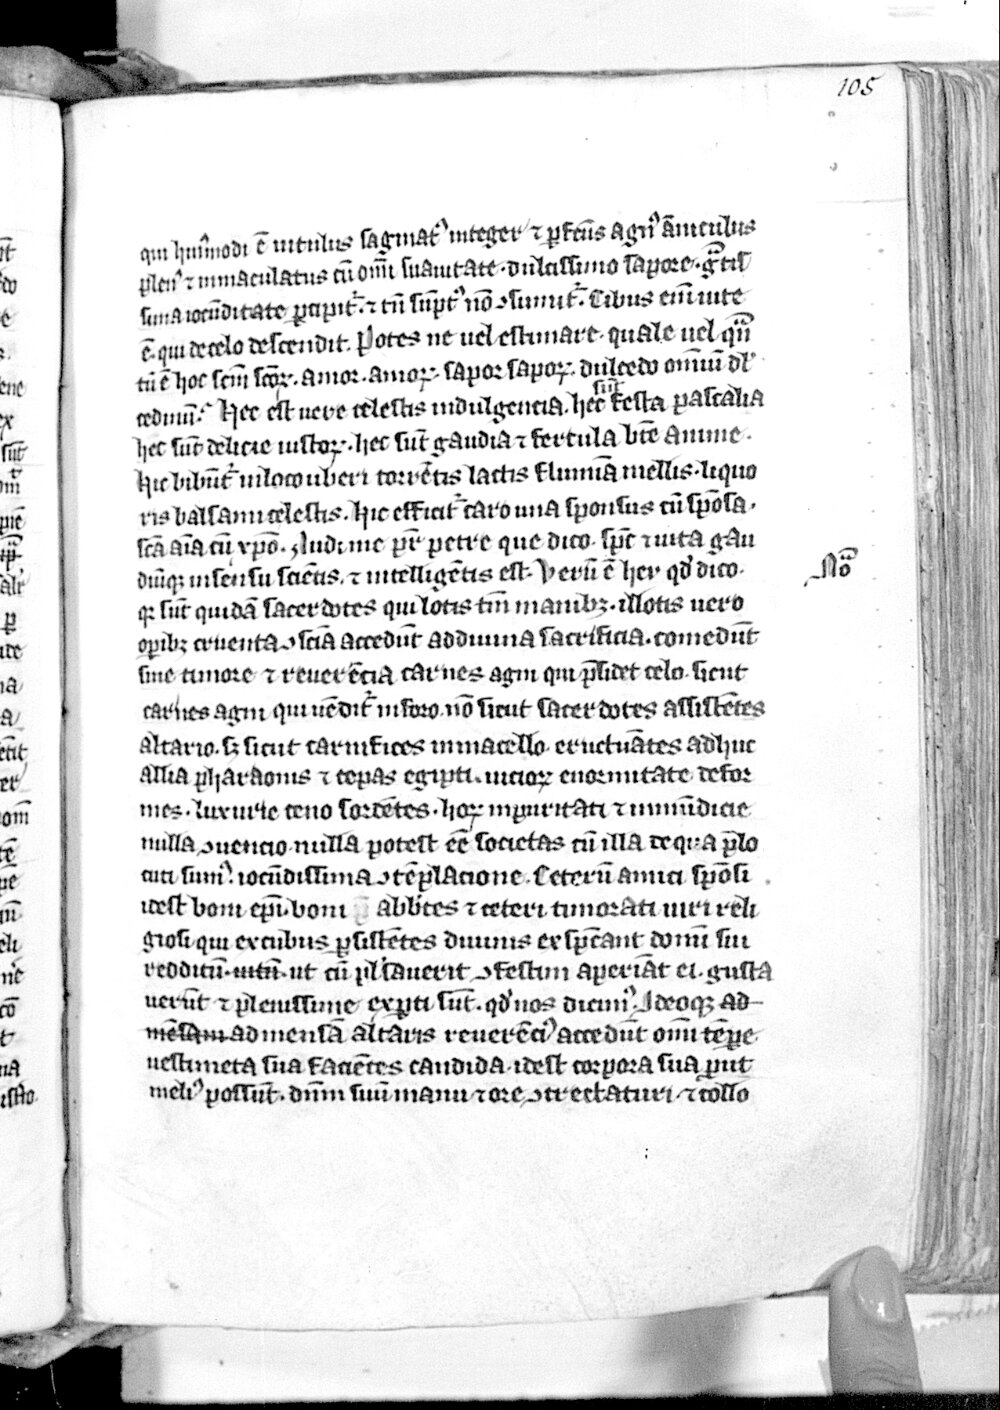 105
qui hui᷒modi ē uitulus saginat᷒ integer ⁊ ꝑfct̄us agn᷒ āniculus
plen᷒ ⁊ inmaculatus cū om̄i suauitate · dulcissimo sapore · gᷓtis
suma iocūditate ꝑcipit᷑ · ⁊ tn̄ sūpt᷒ nō ↄsumit᷑ . Cibus em̄ uite
ē · qui de celo descendit . Potes ne uel estimare · quale uel qᷓn
tū ē hoc scm̄ scoꝝ · amor · amoꝝ · sapor sapoꝝ · dulcedo omīū dl᷒
cedinū . Hec est uere celestis indulgencia . hec sūt festa pascalia
hec sūt delicie iustoꝝ · hec sūt gaudia ⁊ fertula bt̄e anime .
Hic bibūt᷑ in loco uberi torrētis lactis flumīa mellis · liquo
ris balsami celestis . Hic efficit᷑ caro una sponsus cū spōsa .
scā aīa cū xp̄o . Audi me pr̄ petre que dico . spc̄ ⁊ uita gau
diūqꝫ in sensu sciētis · ⁊ intelligētis est . Verū ē hec qd᷒ dico .
Noᷓ
qꝫ sūt quidā sacerdotes qui lotis tm̄ manibꝫ · illotis uero
oꝑibꝫ cruenta ↄsciā accedūt ad diuina sacrificia . comedūt
sine timore ⁊ reuerēcia carnes agni qui p̄sidet celo · sicut
carnes agni qui uēdit᷑ in foro . nō sicut sacerdotes assistētes
altario . sꝫ sicut carnifices in macello . eructuātes adhuc
allia pharaonis ⁊ cepas egipti . uicioꝝ enormitate defor
mes · luxurie ceno sordētes . hoꝝ inpuritati ⁊ inmūdicie
nulla ↄuencio · nulla potest eē societas cū illa de qua p̄lo
cuti sum᷒ · iocūdissima ↄtēplacione . Ceterū amici spōsi
idest boni ep̄i · boni abb̄tes ⁊ ceteri timorati uiri reli
giosi qui excubiis ꝑsistētes diuinis exspc̄ant domī sui
redditū · ut cū pulsauerit ↄfestim aperiāt ei · gusta
uerūt ⁊ plenissime exꝑti sūt · qd᷒ nos dicim᷒ . Ideoqꝫ ad
mēsam ad mensā altaris reuerēci᷒ accedūt omī tēpore
uestimēta sua faciētes candida · idest corpora sua ꝓut
meli᷒ possūt · dn̄m suū manu ⁊ ore ↄtrectaturi · ⁊ tollo